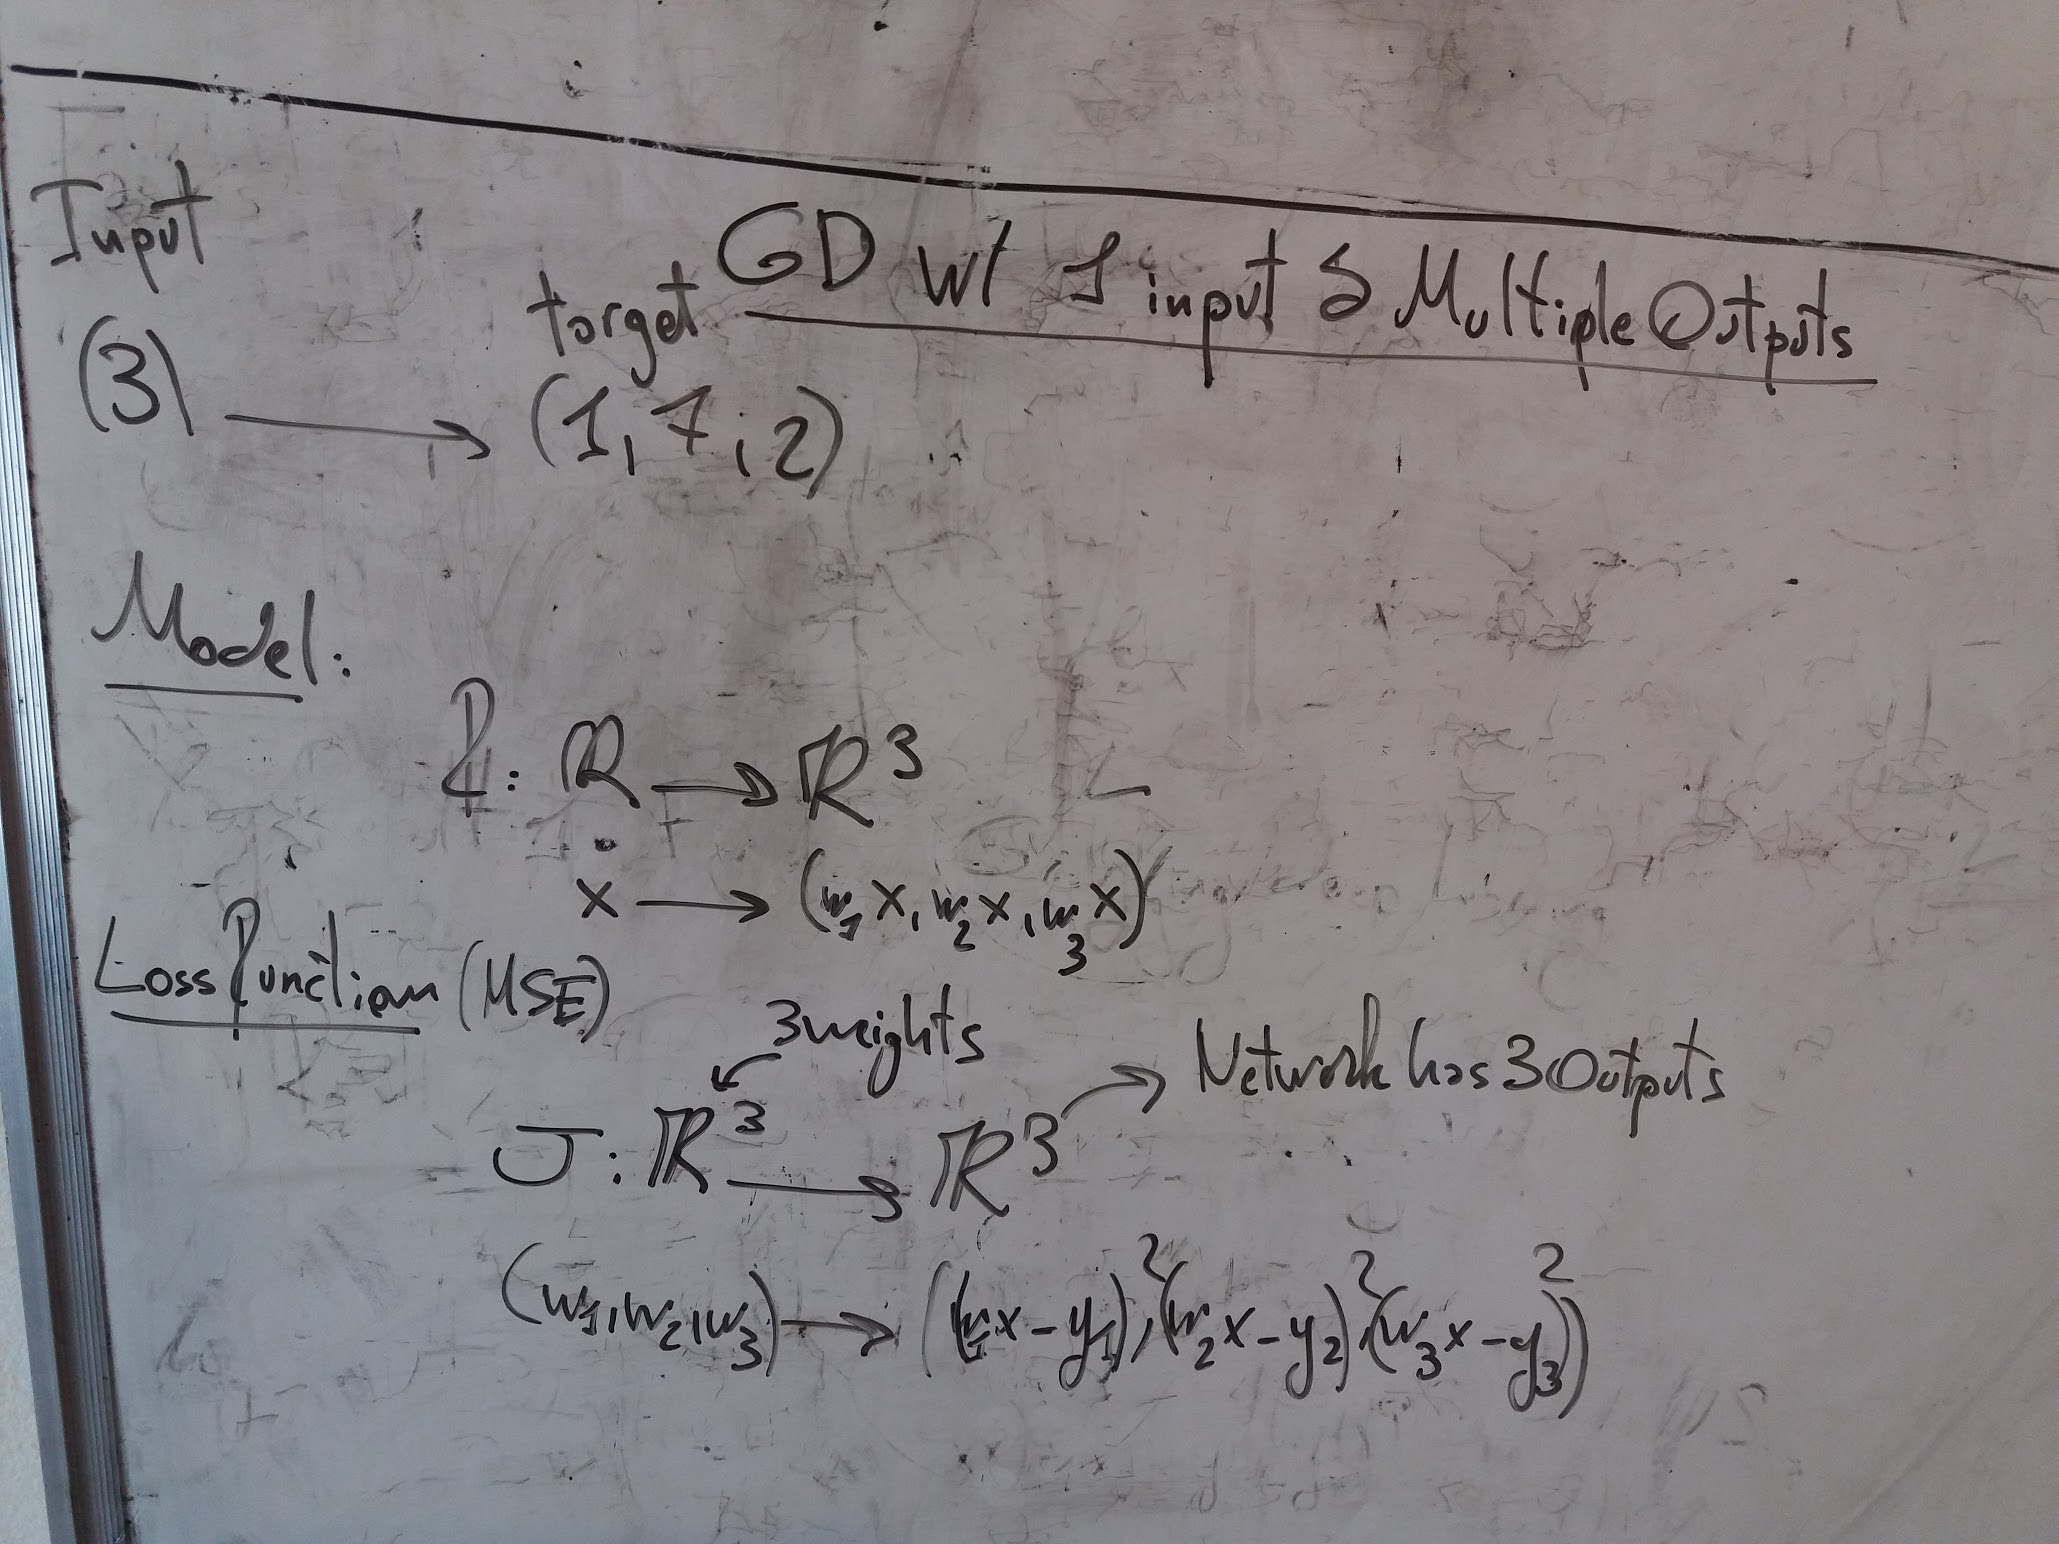 Input
GD w/ 1 input & Multiple Outputs
target
(3) → (1, 7, 2)
Model:
f: ℝ → ℝ³
x → (w₁x, w₂x, w₃x)
Loss function (MSE)
3 weights
Network has 3 Outputs
J: ℝ³ → ℝ³
(w₁, w₂, w₃) → ((w₁x - y₁)², (w₂x - y₂)², (w₃x - y₃)²)